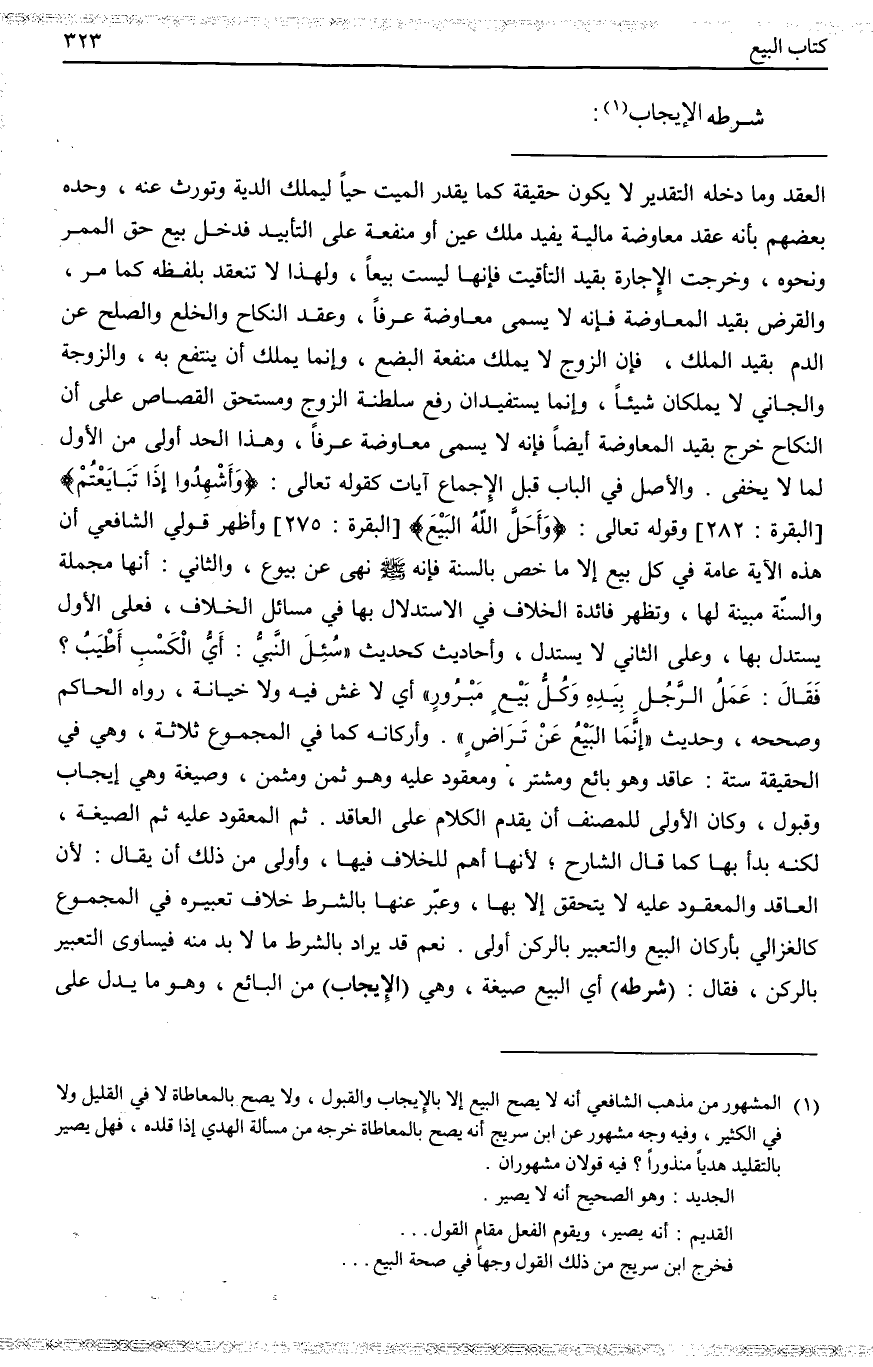 كتاب البيع
٣٢٣
شرطه الإيجاب(١) :
العقد وما دخله التقدير لا يكون حقيقة كما يقدر الميت حياً ليملك الدية وتورث عنه ، وحده
بعضهم بأنه عقد معاوضة مالية يفيد ملك عين أو منفعة على التأبيد فدخل بيع حق الممر
ونحوه ، وخرجت الإجارة بقيد التأقيت فإنها ليست بيعاً ، ولهذا لا تنعقد بلفظه كما مر ،
والقرض بقيد المعاوضة فإنه لا يسمى معاوضة عرفاً ، وعقد النكاح والخلع والصلح عن
الدم بقيد الملك ، فإن الزوج لا يملك منفعة البضع ، وإنما يملك أن ينتفع به ، والزوجة
والجاني لا يملكان شيئاً ، وإنما يستفيدان رفع سلطنة الزوج ومستحق القصاص على أن
النكاح خرج بقيد المعاوضة أيضاً فإنه لا يسمى معاوضة عرفاً ، وهذا الحد أولى من الأول
لما لا يخفى . والأصل في الباب قبل الإجماع آيات كقوله تعالى : ﴿وَأَشْهِدُوا إِذَا تَبَايَعْتُمْ﴾
[البقرة : ٢٨٢] وقوله تعالى : ﴿وَأَحَلَّ اللّهُ البَيْعَ﴾ [البقرة : ٢٧٥] وأظهر قولي الشافعي أن
هذه الآية عامة في كل بيع إلا ما خص بالسنة فإنه ﷺ نهى عن بيوع ، والثاني : أنها مجملة
والسنّة مبينة لها ، وتظهر فائدة الخلاف في الاستدلال بها في مسائل الخلاف ، فعلى الأول
يستدل بها ، وعلى الثاني لا يستدل ، وأحاديث كحديث «سُئِلَ النَّبِيُّ : أَيُّ الْكَسْبِ أَطْيَبُ ؟
فَقَالَ : عَمَلُ الرَّجُلِ بِيَدِهِ وَكُلُّ بَيْعٍ مَبْرُورٍ» أي لا غش فيه ولا خيانة ، رواه الحاكم
وصححه ، وحديث «إِنَّمَا البَيْعُ عَنْ تَرَاضٍ» . وأركانه كما في المجموع ثلاثة ، وهي في
الحقيقة ستة : عاقد وهو بائع ومشتر ، ومعقود عليه وهو ثمن ومثمن ، وصيغة وهي إيجاب
وقبول ، وكان الأولى للمصنف أن يقدم الكلام على العاقد . ثم المعقود عليه ثم الصيغة ،
لكنه بدأ بها كما قال الشارح ؛ لأنها أهم للخلاف فيها ، وأولى من ذلك أن يقال : لأن
العاقد والمعقود عليه لا يتحقق إلا بها ، وعبّر عنها بالشرط خلاف تعبيره في المجموع
كالغزالي بأركان البيع والتعبير بالركن أولى . نعم قد يراد بالشرط ما لا بد منه فيساوى التعبير
بالركن ، فقال : (شرطه) أي البيع صيغة ، وهي (الإيجاب) من البائع ، وهو ما يدل على
(١) المشهور من مذهب الشافعي أنه لا يصح البيع إلا بالإيجاب والقبول ، ولا يصح بالمعاطاة لا في القليل ولا
في الكثير ، وفيه وجه مشهور عن ابن سريج أنه يصح بالمعاطاة خرجه من مسألة الهدي إذا قلده ، فهل يصير
بالتقليد هدياً منذوراً ؟ فيه قولان مشهوران .
الجديد : وهو الصحيح أنه لا يصير .
القديم : أنه يصير، ويقوم الفعل مقام القول...
فخرج ابن سريج من ذلك القول وجهاً في صحة البيع...